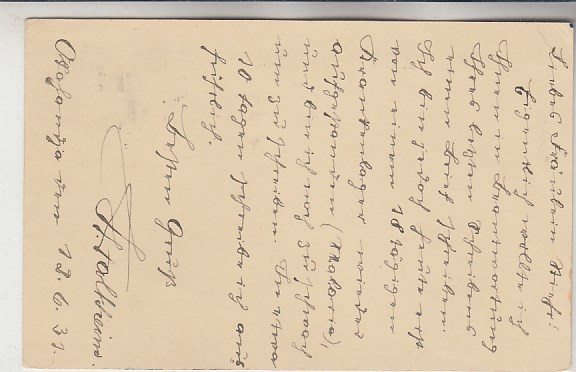 Liebes Fräulein Kraft!
Eigentlich wollte ich
Ihnen in Beantwortung
Ihres letzten Schreibens
einen Brief schreiben.
Ich bin jedoch heute erst
von einem 18 tägigen
Krankenlager wieder
aufgestanden (Malaria),
und bin ich noch zu schwach
um zu schreiben. In etwa
10 Tagen schreibe ich aus-
führlich.
Besten Gruß
den 12.6.31.